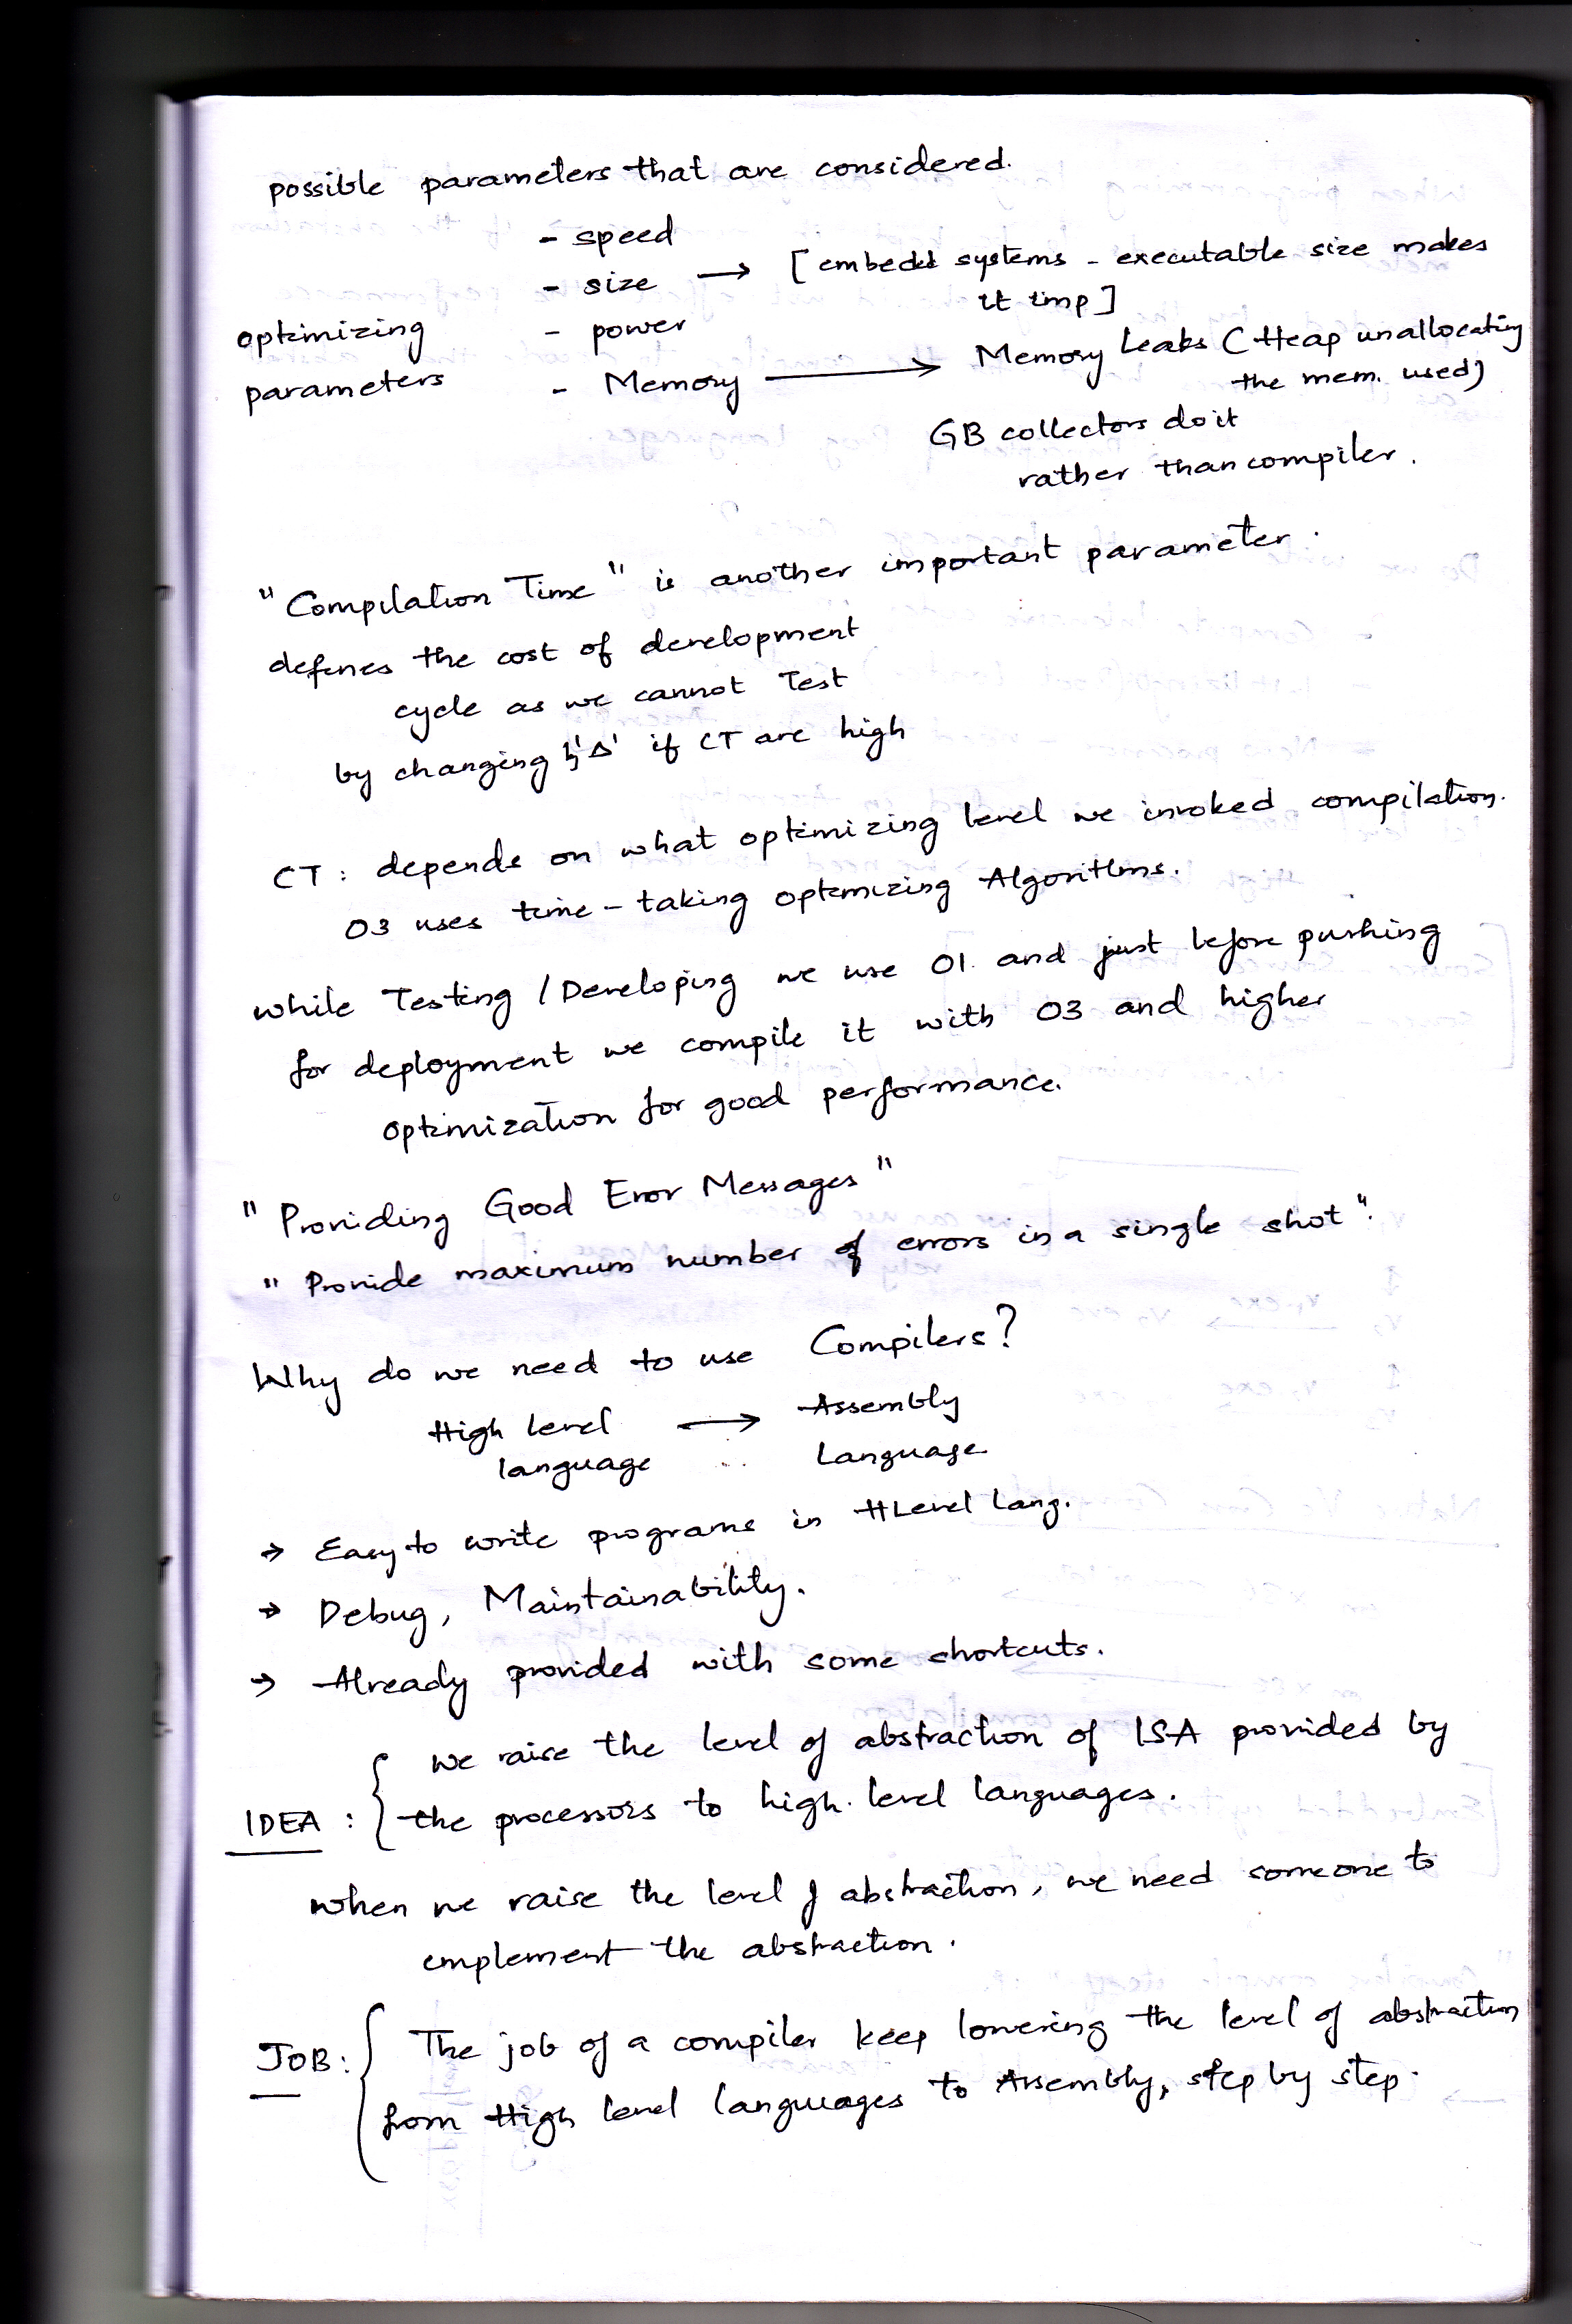 possible parameters that are considered.
- speed
- size → [embedded systems - executable size makes
it imp]
optimizing - power
parameters - Memory → Memory Leaks (Heap unallocating
the mem. used)
GB collectors do it
rather than compiler.
"Compilation Time" is another important parameter.
defines the cost of development
cycle as we cannot Test
by changing 'Δ' if CT are high
CT: depends on what optimizing level we invoked compilation.
O3 uses time-taking optimizing Algorithms.
while Testing / Developing we use O1 and just before pushing
for deployment we compile it with O3 and higher
optimization for good performance.
"Providing Good Error Messages"
"Provide maximum number of errors in a single shot".
Why do we need to use Compilers?
High level → Assembly
language Language
→ Easy to write programs in HLevel Lang.
→ Debug, Maintainability.
→ Already provided with some shortcuts.
we raise the level of abstraction of ISA provided by
IDEA: { the processors to high level languages.
when we raise the level of abstraction, we need someone to
implement the abstraction.
JOB: { The job of a compiler keep lowering the level of abstraction
from High level languages to Assembly, step by step.